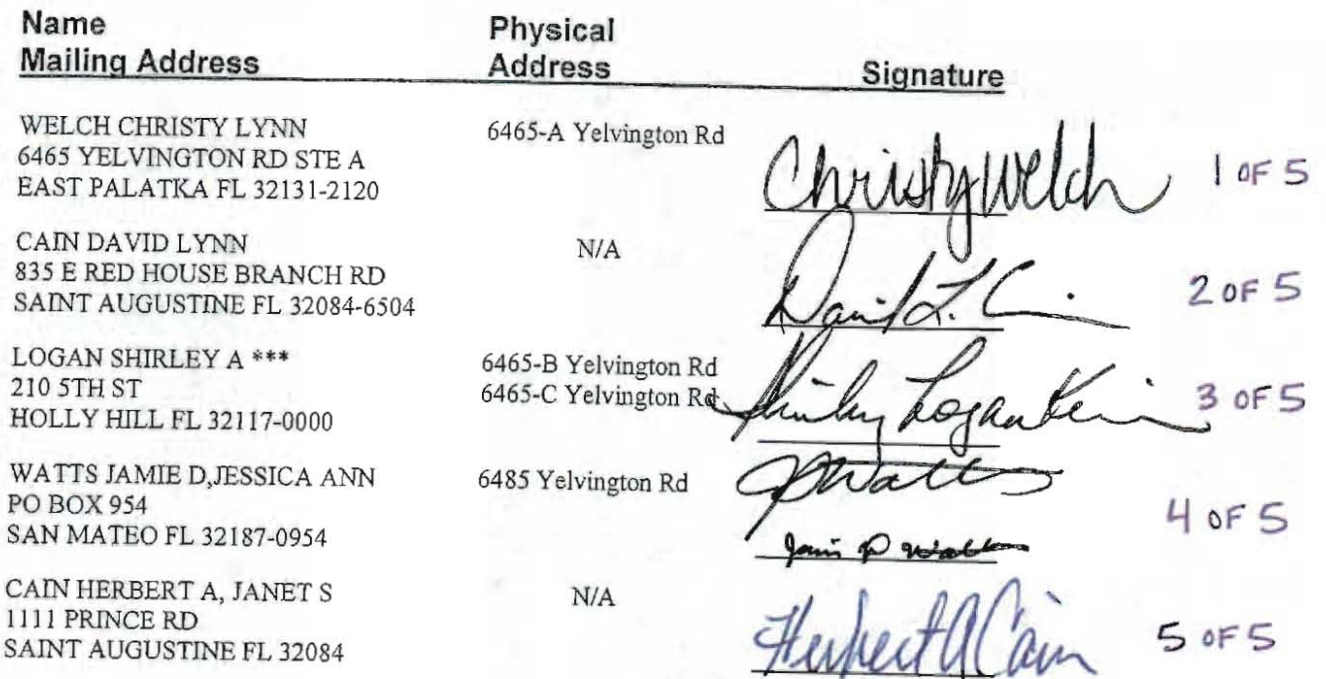 Name
Mailing Address
Physical
Address
Signature
WELCH CHRISTY LYNN
6465 YELVINGTON RD STE A
EAST PALATKA FL 32131-2120
6465-A Yelvington Rd
Christy Welch
1 OF 5
CAIN DAVID LYNN
835 E RED HOUSE BRANCH RD
SAINT AUGUSTINE FL 32084-6504
N/A
David L. C
2 OF 5
LOGAN SHIRLEY A ***
210 5TH ST
HOLLY HILL FL 32117-0000
6465-B Yelvington Rd
6465-C Yelvington Rd
Shirley Logan
3 OF 5
WATTS JAMIE D,JESSICA ANN
PO BOX 954
SAN MATEO FL 32187-0954
6485 Yelvington Rd
Watts
Jamie D Watts
4 OF 5
CAIN HERBERT A, JANET S
1111 PRINCE RD
SAINT AUGUSTINE FL 32084
N/A
Herbert A Cain
5 OF 5